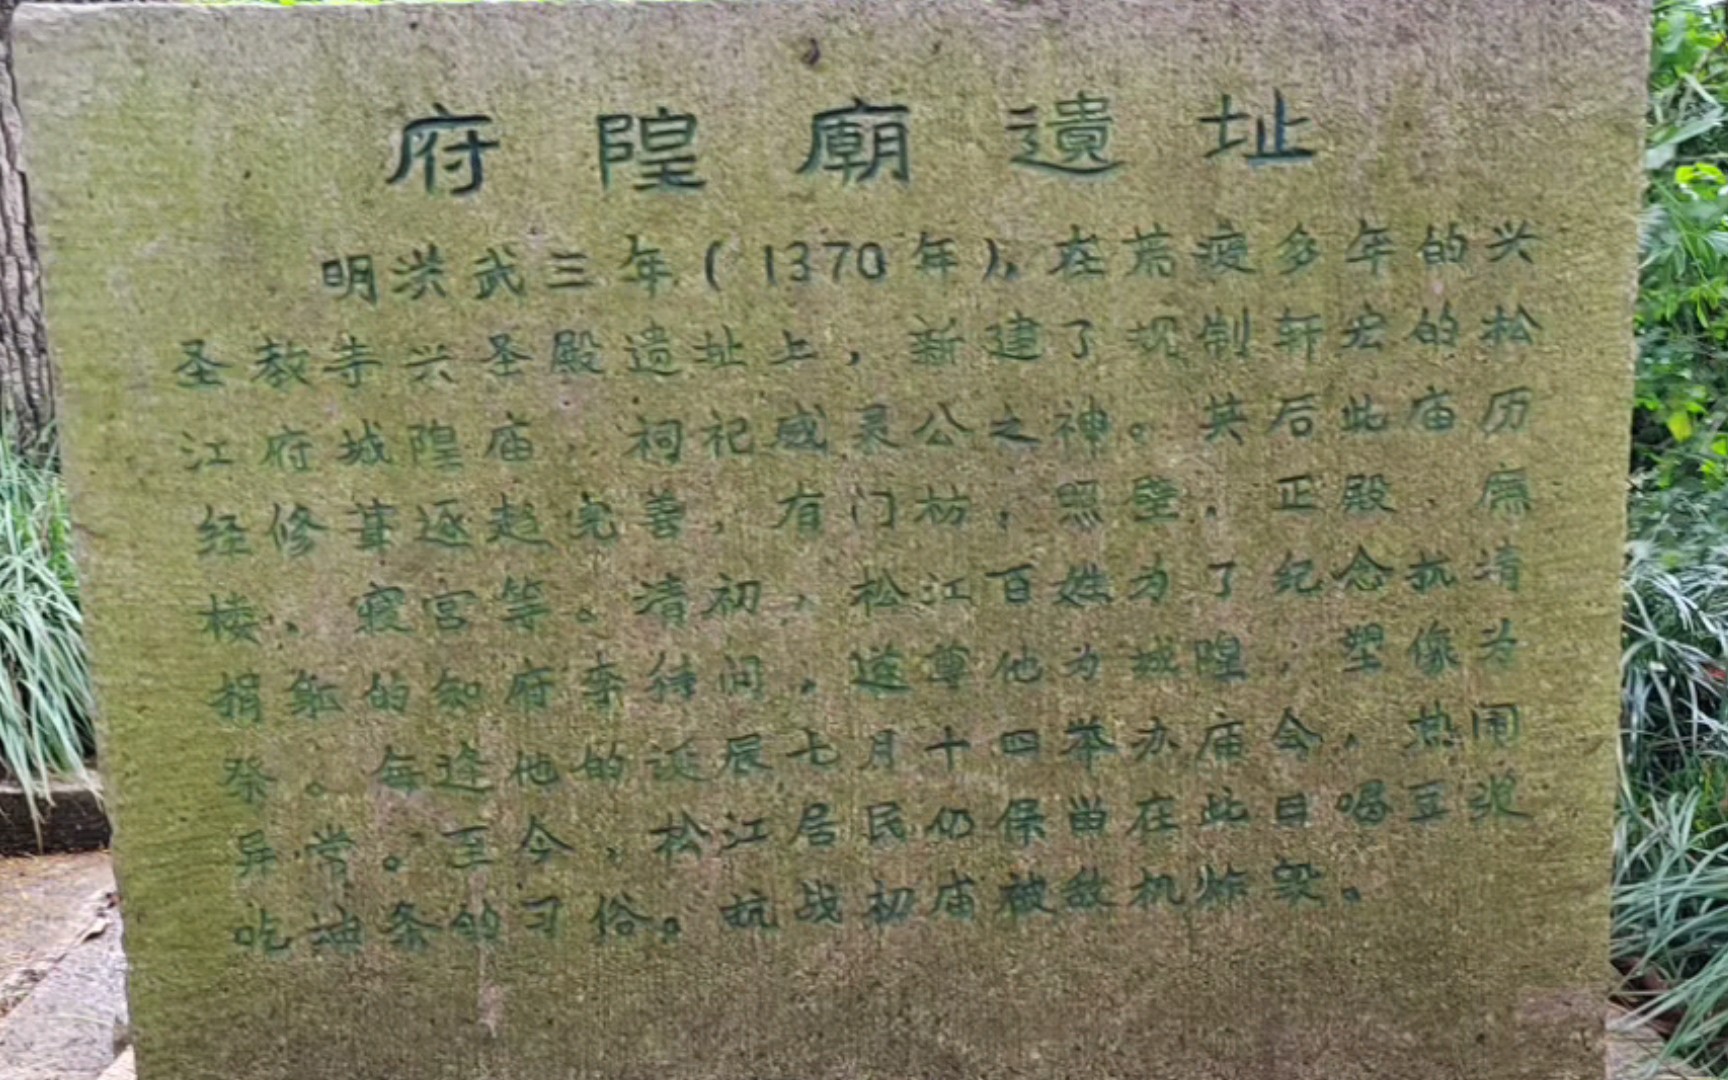 府隍廟遺址
明洪武三年(1370年),在荒废多年的兴
圣教寺兴圣殿遗址上，新建了规制轩宏的松
江府城隍庙，祠祀威灵公之神。其后此庙历
经修葺逐趋完善，有门枋，照壁，正殿，庑
楼，寝宫等。清初，松江百姓为了纪念抗清
捐躯的知府李待问，遂尊他为城隍，塑像为
祭。每逢他的诞辰七月十四举办庙会，热闹
异常。至今，松江居民仍保留在此日喝豆浆
吃油条的习俗。抗战初庙被敌机炸毁。